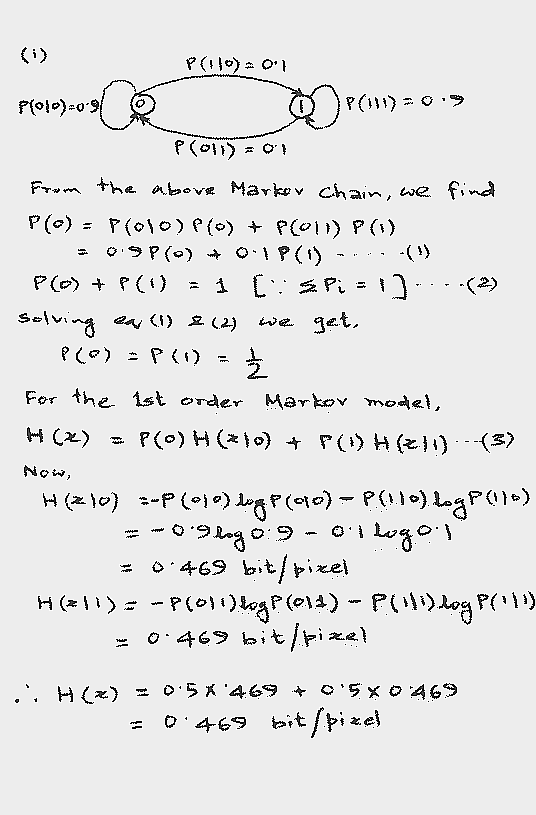 (i)
P(1|0) = 0.1
P(0|0)=0.9
0
1
P(1|1) = 0.9
P(0|1) = 0.1
From the above Markov Chain, we find
P(0) = P(0|0) P(0) + P(0|1) P(1)
= 0.9 P(0) + 0.1 P(1) ------(1)
P(0) + P(1) = 1 [∵ ΣPi = 1] ----(2)
Solving eq (1) & (2) we get,
P(0) = P(1) = 1/2
For the 1st order Markov model,
H(z) = P(0) H(z|0) + P(1) H(z|1) ---(3)
Now,
H(z|0) = -P(0|0) log P(0|0) - P(1|0) log P(1|0)
= -0.9 log 0.9 - 0.1 log 0.1
= 0.469 bit/pixel
H(z|1) = -P(0|1) log P(0|1) - P(1|1) log P(1|1)
= 0.469 bit/pixel
∴ H(z) = 0.5 X .469 + 0.5 X 0.469
= 0.469 bit/pixel